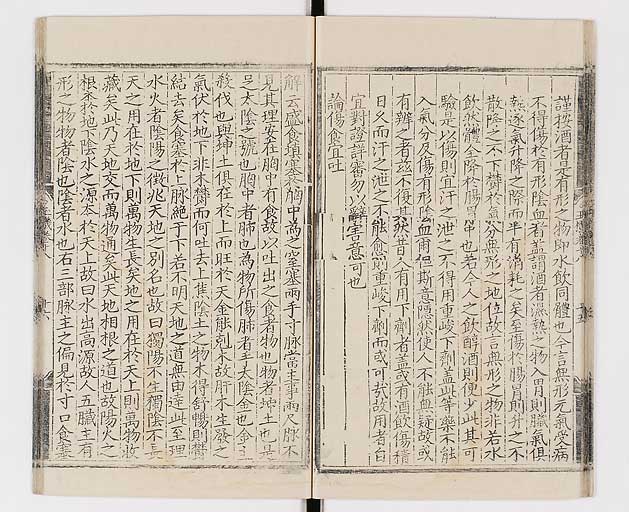 謹按酒者是有形之物即水飲同體也今言無形元氣受病
不得傷於有形陰血者蓋謂酒者濕熱之物入胃則臟氣俱
逐氣升降之際而半有消耗之矣至傷於腸胃則升之不
散降之不下欝於氣分無形之地位故言無形之物非若水
飲然體令降於腸胃帶也若今人之飲醇酒則便少此其可
驗是以傷則宜汗之泄之不得用重峻下劑蓋此等藥不能
入氣分及傷有形陰血爾但斯意隱然使人不能無疑故或
有辦之者茲不復吐然昔人有用下劑者蓋或有酒飲傷積
日久而汗之泄之不能愈則重峻下劑而或可哉故用者臼
宜對證詳審勿以辭害意可也
論傷食宜吐
解云盛食塡塞於胸中為之窒塞兩手寸脉當主事兩尺脉不
見其理安在胸中有食故以吐出之食者物也物者坤土也是
足太陰之號也胸中者肺也為物所傷肺者手太陰金也金主
殺伐也與坤土俱在於上而旺於天金能剋木故肝木生發之
氣伏於地下非木欝而何吐去上焦陰土之物木得舒暢則欝
結去矣食塞於上脉絕于下若不明天地之道無由達此至理
水火者陰陽之徵兆天地之別名也故曰獨陽不生獨陰不長
天之用在於地下則萬物生長矣地之用在於天上則萬物收
藏矣此乃天地交而萬物通矣此天地相根之道也故陽火之
根本於地下陰水之源本於天上故曰水出高源故人五臟主有
形之物物者陰也陰者水也右三部脉主之偏見於寸口食塞